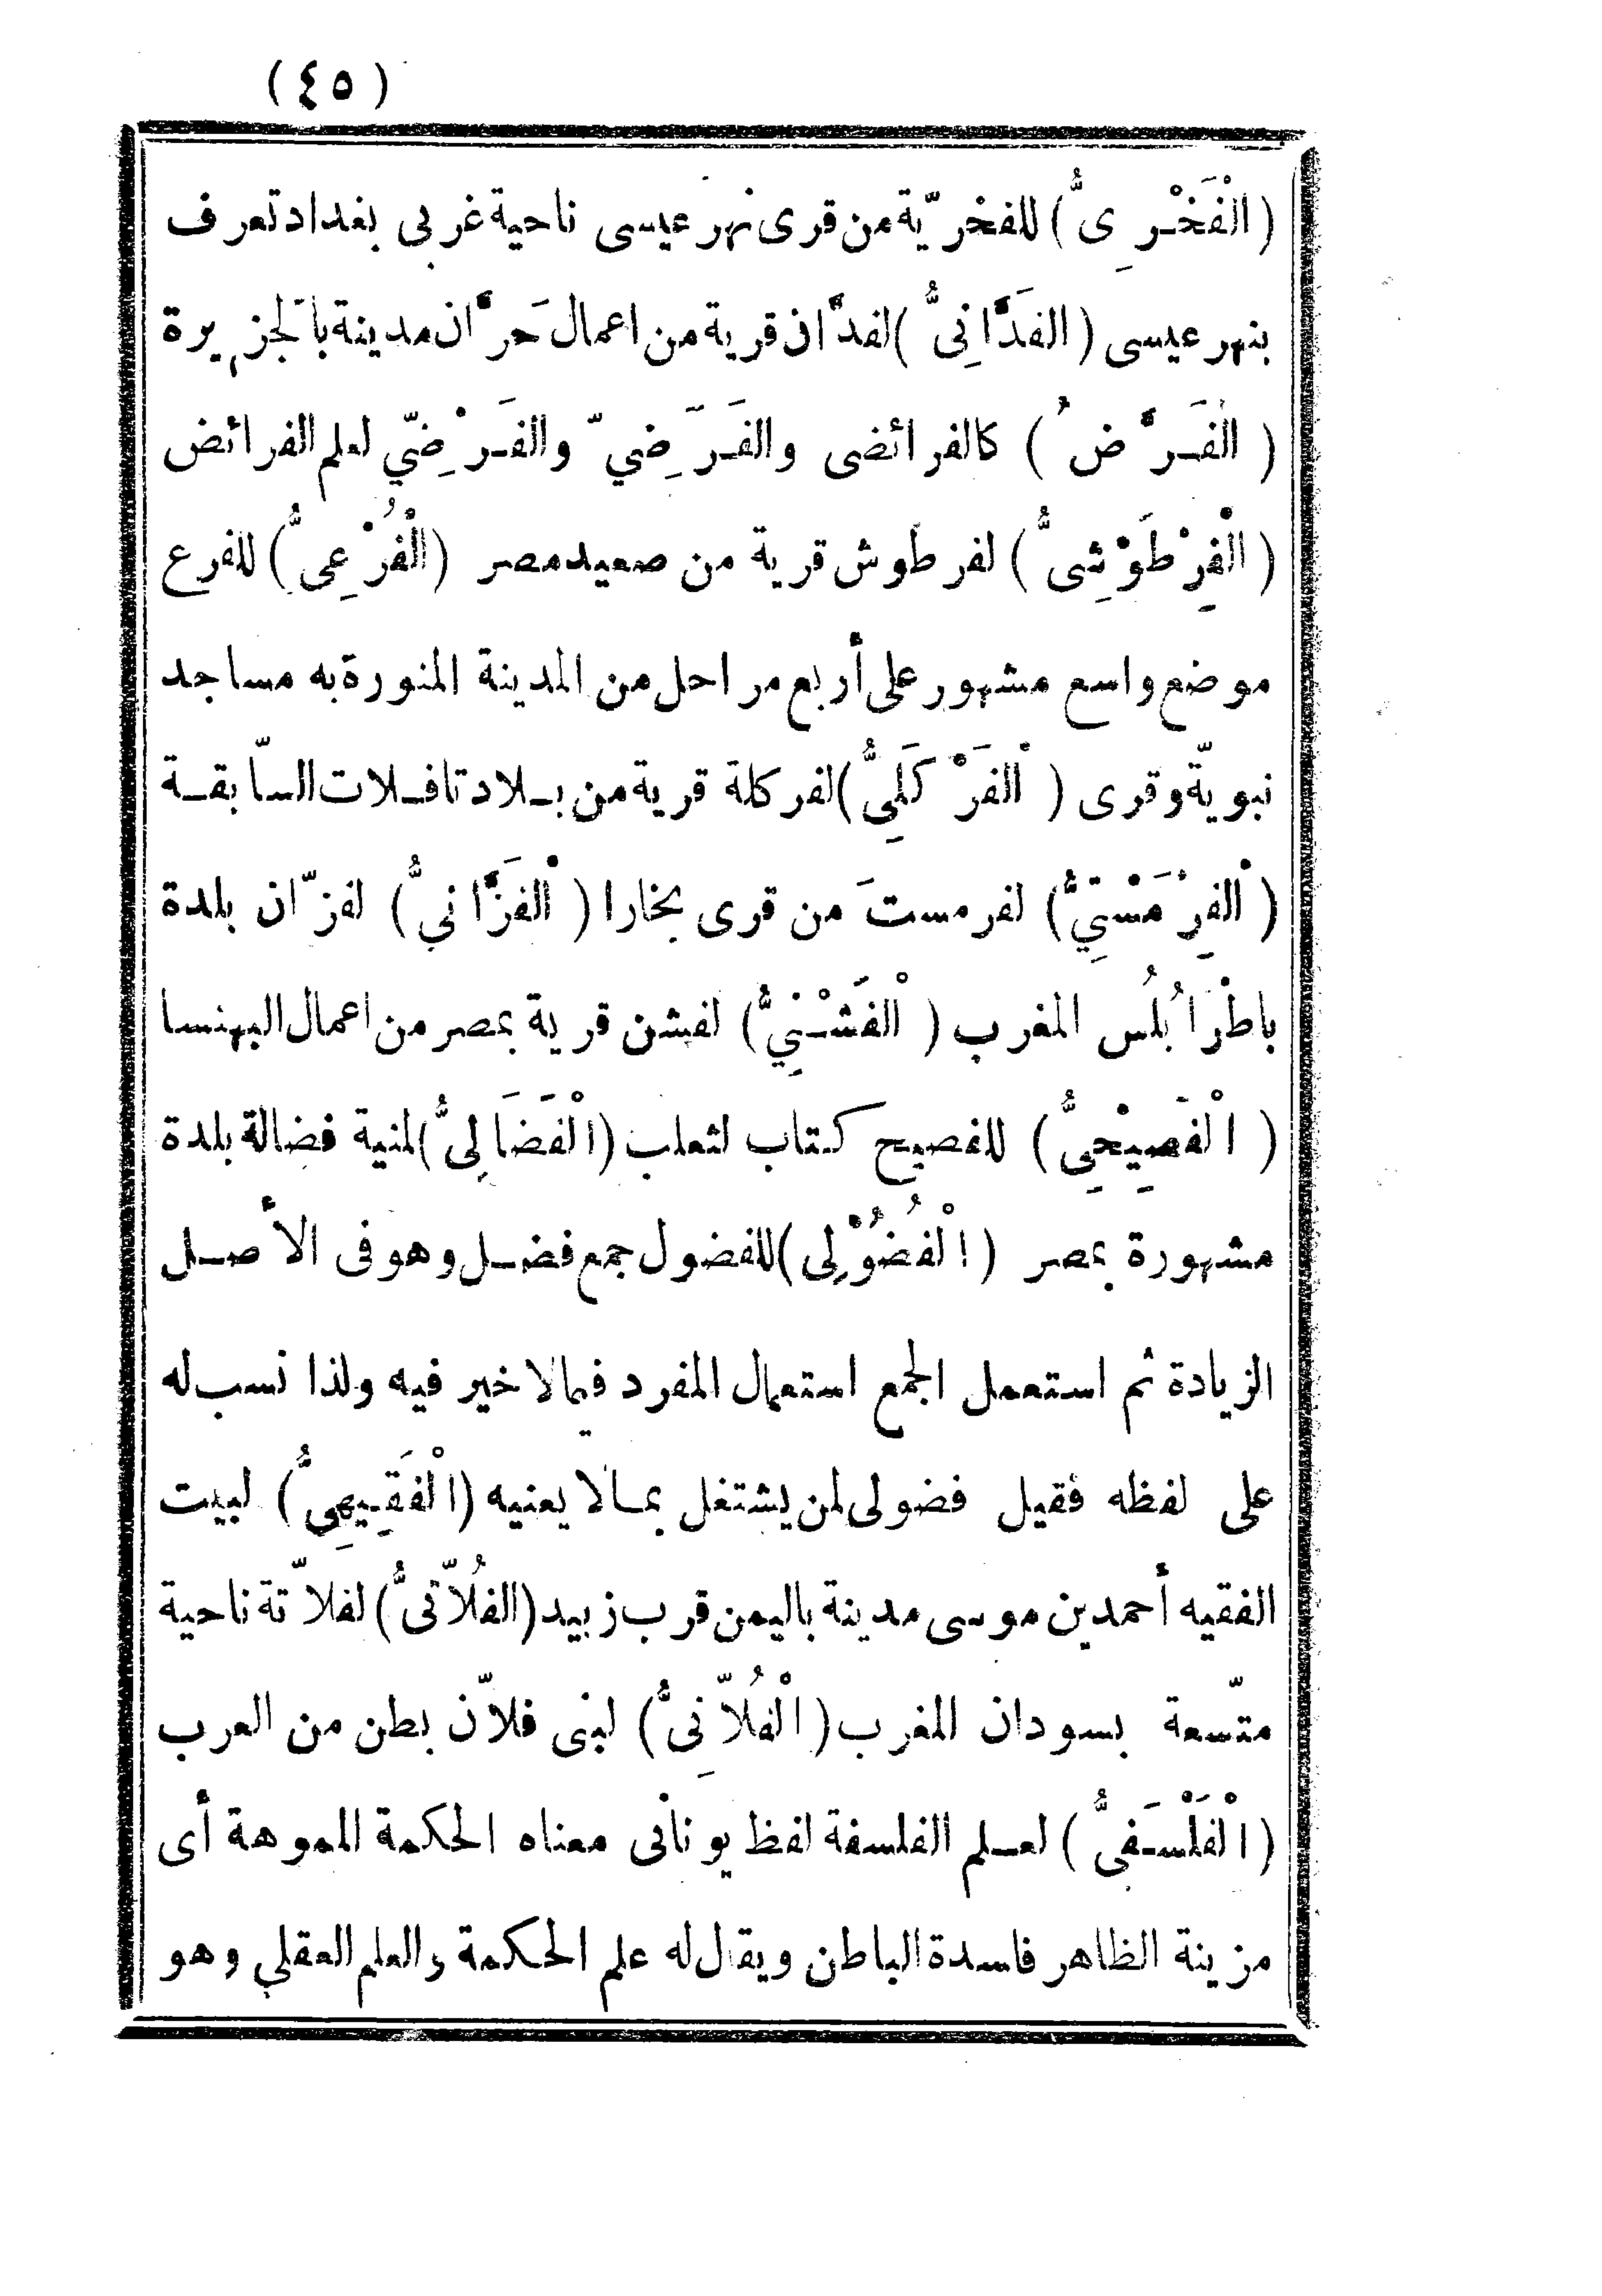 (٤٥)
(الْفَخْرِىُّ) للفخريّة من قرى نهر عيسى ناحية غربى بغداد تعرف
بنهر عيسى (الفَدَّانِىُّ) لفدَّان قرية من اعمال حَرَّان مدينة بالجزيرة
(الْفَرَّضُ) كالفرائضى والفَرَّضِيّ والفَرْضِيّ لعلم الفرائض
(الْفِرْطَوْشِىُّ) لفرطوش قرية من صعيد مصر (الْفُرْعِىُّ) للفرع
موضع واسع مشهور على أربع مراحل من المدينة المنورة به مساجد
نبويّة وقرى (الْفَرْكَلِىُّ) لفركلة قرية من بلاد تافلات السّابقة
(الْفِرْمَسْتِيُّ) لفرمستَ من قرى بخارا (الْفَزَّانيُّ) لفزّان بلدة
باطْرَابُلُس المغرب (الْفَشْنِيُّ) لفشن قرية بمصر من اعمال البهنسا
(الْفَصِيْحِىُّ) للفصيح كتاب لثعلب (الْفَضَالِىُّ) لمنية فضالة بلدة
مشهورة بمصر (الْفُضُوْلِى) للفضول جمع فضل وهو فى الأصل
الزيادة ثم استعمل الجمع استعمال المفرد فيمالا خير فيه ولذا نسب له
على لفظه فقيل فضولى لمن يشتغل بمالا يعنيه (الْفَقِيهِىُّ) لبيت
الفقيه أحمد بن موسى مدينة باليمن قرب زبيد (الفُلاّتىُّ) لفلاّتة ناحية
متّسعة بسودان المغرب (الْفُلاّنِىُّ) لبنى فلاّن بطن من العرب
(الْفَلْسَفىُّ) لعلم الفلسفة لفظ يونانى معناه الحكمة المموهة أى
مزينة الظاهر فاسدة الباطن ويقال له علم الحكمة والعلم العقلي وهو